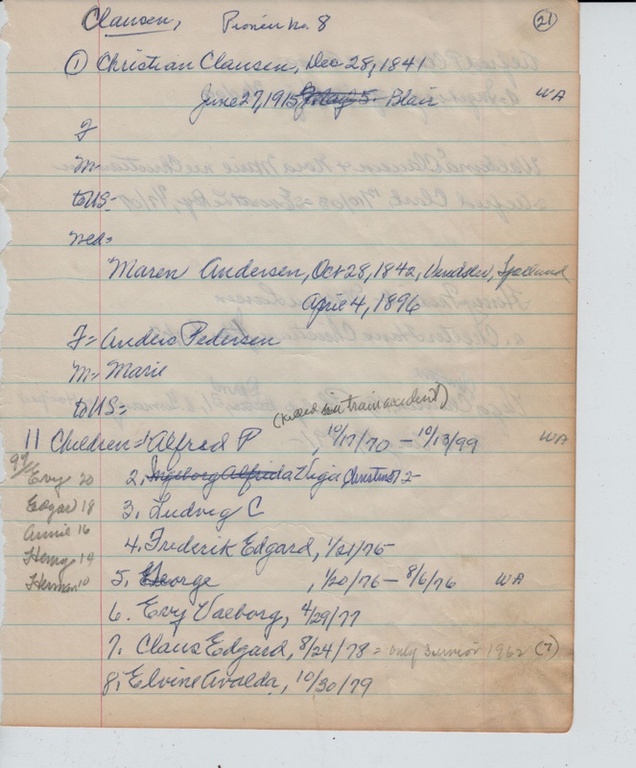 Clausen, Pioneer No. 8 21
① Christian Clausen, Dec 28, 1841
June 27, 1915 Blair WA
F
M-
to US-
Med=
Maren Andersen, Oct 28, 1842, Sjælland
April 4, 1896
F= Anders Pedersen
M= Marie
to US=
(Killed in train accident)
11 Children= 1 Alfred P , 10/17/70 – 10/13/99 WA
99
2, Ingeborg Alfrida Viga Christina 72-
Evy 20
3, Ludvig C
Edgar 18
Annie 16
4, Frederik Edgard, 1/21/75-
Henry 14
Herman 10
5, George , 1/20/76 – 8/6/76 WA
6. Evy Valborg, 4/29/77
7, Claus Edgard, 8/24/78 = only survivor 1962 (?)
8, Elvine Avalda, 10/30/79